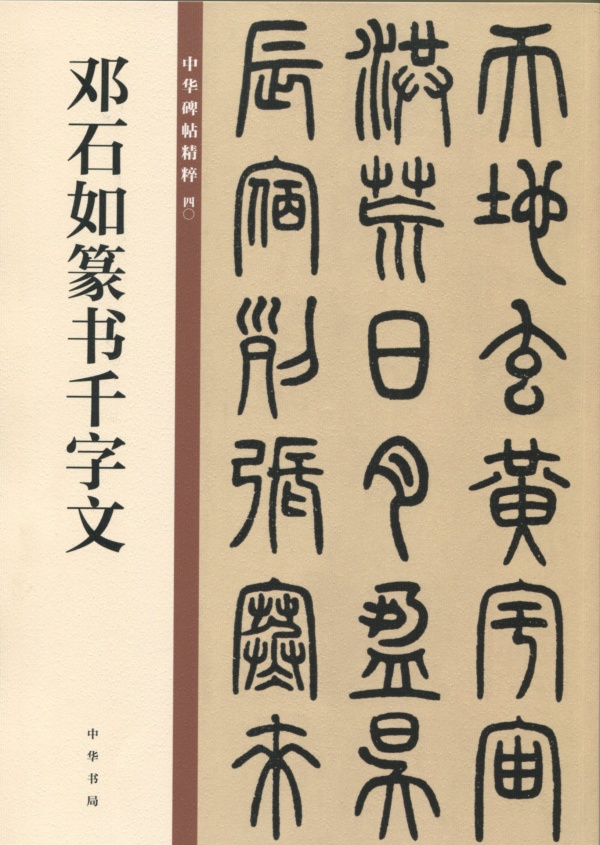 邓石如篆书千字文
中华碑帖精粹 四〇
中华书局
天地玄黄宇宙
洪荒日月盈昃
辰宿列张寒来